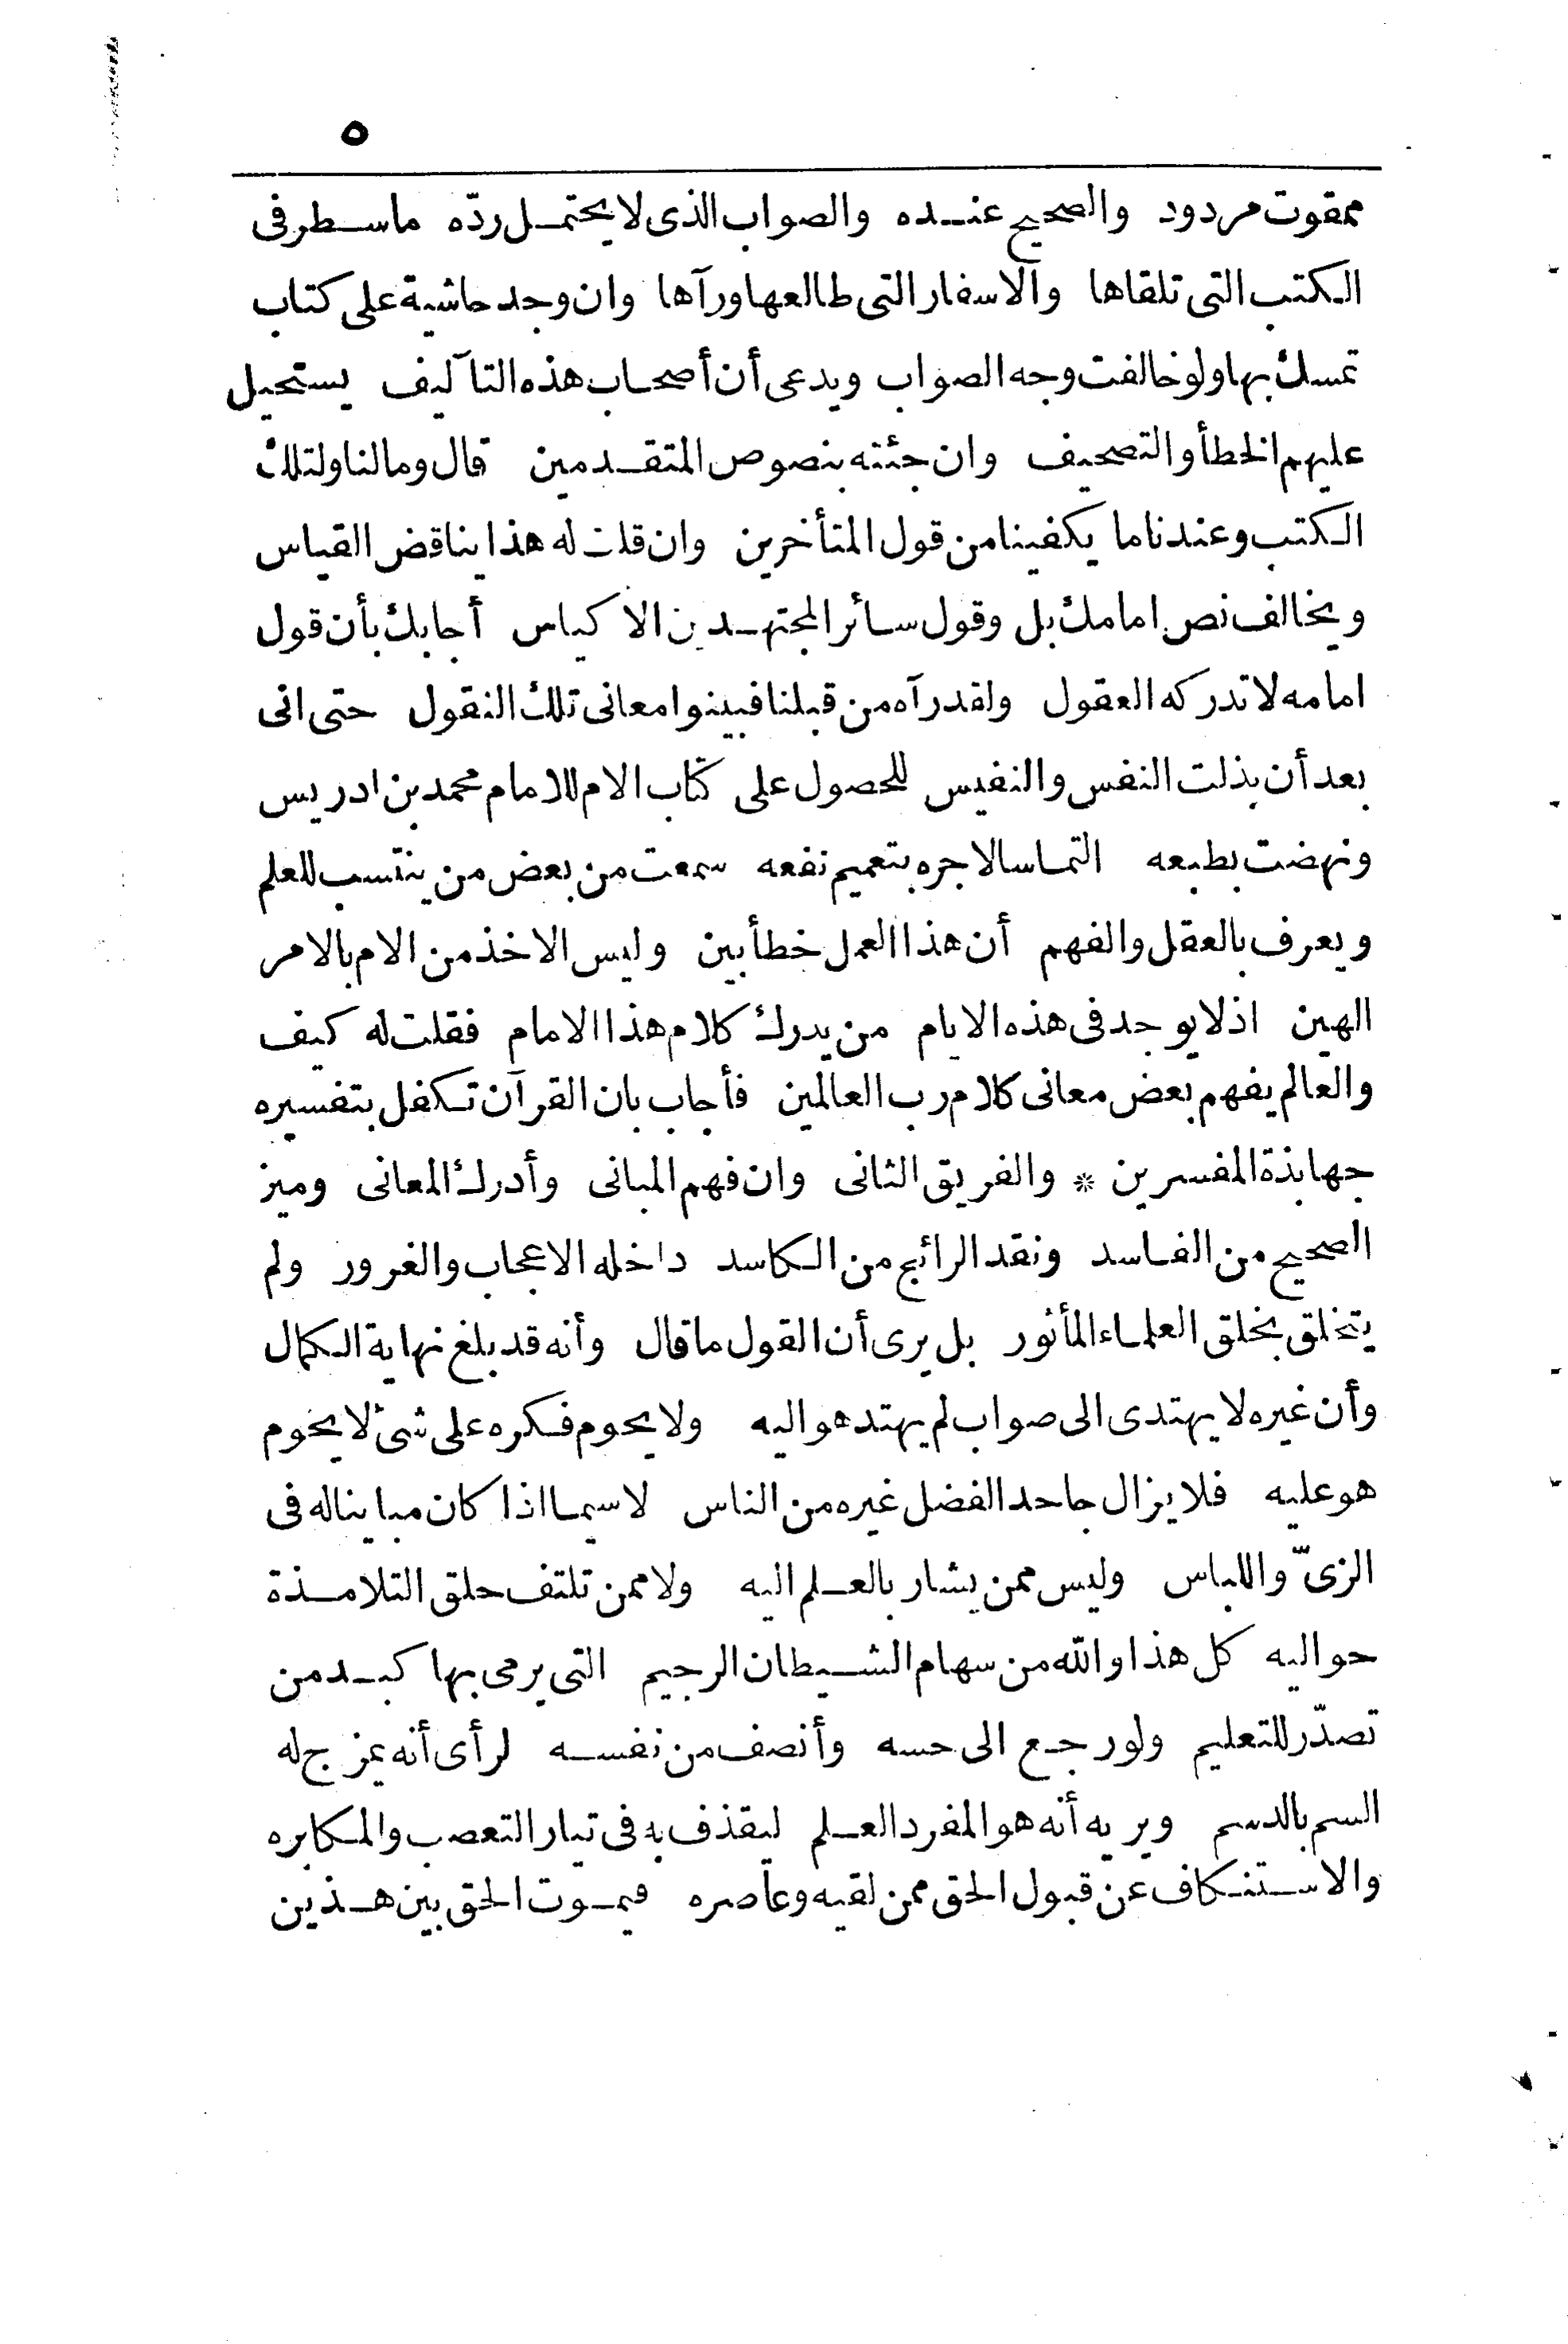 ٥
ممقوت مردود والصحيح عنده والصواب الذى لا يحتمل ردّه ما سطر فى
الكتب التى تلقاها والاسفار التى طالعها ورآها وان وجد حاشية على كتاب
تمسك بها ولو خالفت وجه الصواب ويدعى أن أصحاب هذه التآليف يستحيل
عليهم الخطأ والتصحيف وان جئته بنصوص المتقدمين قال ومالنا ولتلك
الكتب وعندنا ما يكفينا من قول المتأخرين وان قلت له هذا يناقض القياس
ويخالف نص امامك بل وقول سائر المجتهدين الاكياس أجابك بأن قول
امامه لا تدركه العقول ولقد رآه من قبلنا فبينوا معانى تلك النقول حتى انى
بعد أن بذلت النفس والنفيس للحصول على كتاب الام للامام محمد بن ادريس
ونهضت بطبعه التماسا لاجره بتعميم نفعه سمعت من بعض من ينتسب للعلم
ويعرف بالعقل والفهم أن هذا العمل خطأ بين وليس الاخذ من الام بالامر
الهين اذ لا يوجد فى هذه الايام من يدرك كلام هذا الامام فقلت له كيف
والعالم يفهم بعض معانى كلام رب العالمين فأجاب بان القرآن تكفل بتفسيره
جهابذة المفسرين * والفريق الثانى وان فهم المبانى وأدرك المعانى وميز
الصحيح من الفاسد ونقد الرائج من الكاسد داخله الاعجاب والغرور ولم
يتخلق بخلق العلماء المأثور بل يرى أن القول ما قال وأنه قد بلغ نهاية الكمال
وأن غيره لا يهتدى الى صواب لم يهتد هو اليه ولا يحوم فكره على شئ لا يحوم
هو عليه فلا يزال جاحد الفضل غيره من الناس لا سيما اذا كان مباينا له فى
الزىّ واللباس وليس ممن يشار بالعلم اليه ولا ممن تلتف حلق التلامذة
حواليه كل هذا والله من سهام الشيطان الرجيم التى يرمى بها كبد من
تصدّر للتعليم ولو رجع الى حسه وأنصف من نفسه لرأى أنه يمزج له
السم بالدسم ويريه أنه هو المفرد العلم ليقذف به فى تيار التعصب والمكابره
والاستنكاف عن قبول الحق ممن لقيه وعاصره فيموت الحق بين هذين